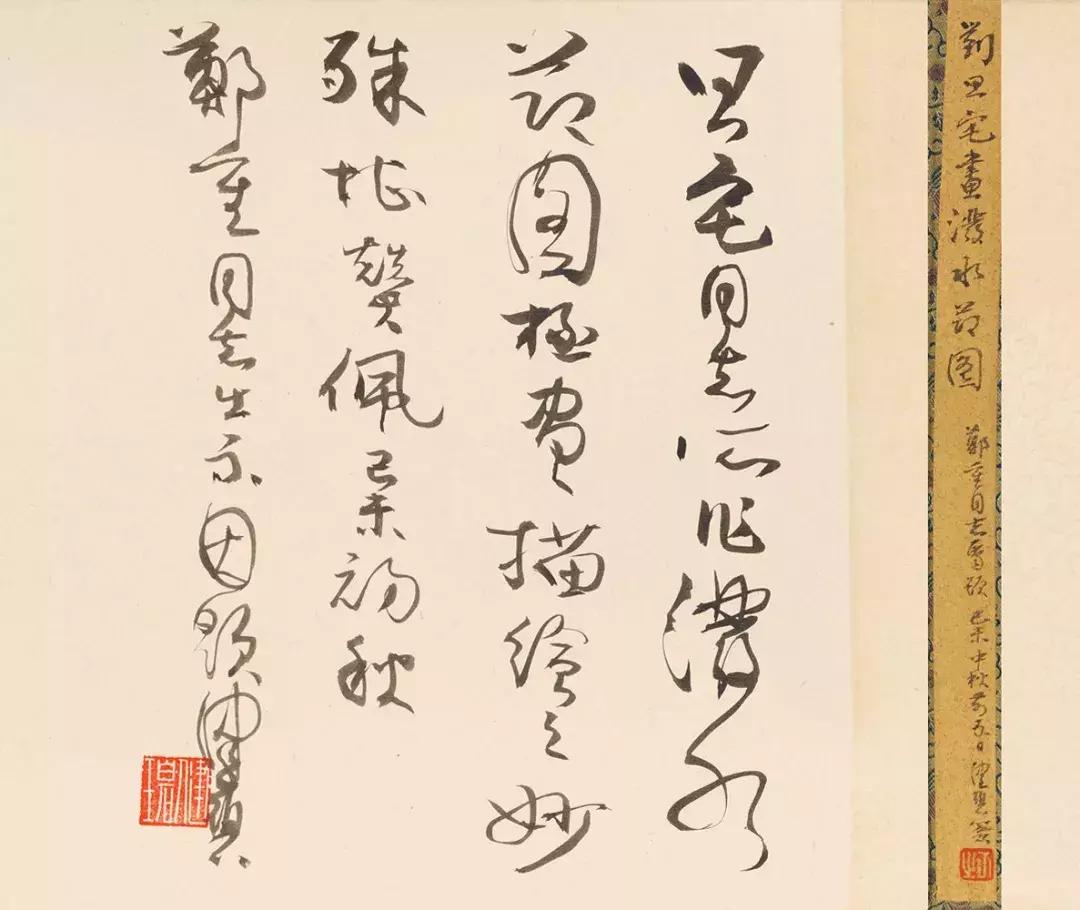 劉旦宅畫潑水节图
鄭重同志属題 己未中秋前五日健碧签
旦宅同志所作潑水
节图極盡描繪之妙
殊堪贊佩己未初秋
鄭重同志出示因題健碧
健碧